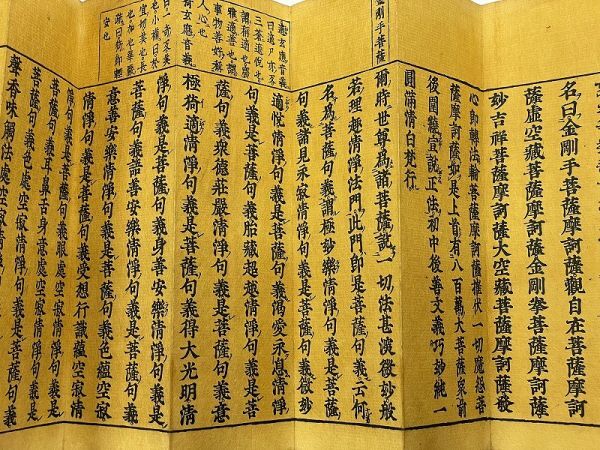 名曰金剛手菩薩摩訶薩觀自在菩薩摩訶
薩虛空藏菩薩摩訶薩金剛拳菩薩摩訶薩
妙吉祥菩薩摩訶薩大空藏菩薩摩訶薩發
心即轉法輪菩薩摩訶薩摧伏一切魔怨菩
薩摩訶薩如是上首有八百萬大菩薩衆前
後圍繞宣說正法初中後善文義巧妙純一
圓滿清白梵行
金剛手菩薩
爾時世尊爲諸菩薩說一切法甚深微妙般
若理趣清淨法門此門即是菩薩句義云何
名爲菩薩句義謂極妙樂清淨句義是菩薩
句義諸見永寂清淨句義是菩薩句義微妙
適悅清淨句義是菩薩句義渴愛永息清淨
句義是菩薩句義胎藏超越清淨句義是菩
薩句義衆德莊嚴清淨句義是菩薩句義意
極猗適清淨句義是菩薩句義得大光明清
淨句義是菩薩句義身善安樂清淨句義是
菩薩句義語善安樂清淨句義是菩薩句義
意善安樂清淨句義是菩薩句義色蘊空寂
清淨句義是菩薩句義受想行識蘊空寂清
淨句義是菩薩句義眼處空寂清淨句義是
菩薩句義耳鼻舌身意處空寂清淨句義是
菩薩句義色處空寂清淨句義是菩薩句義
聲香味觸法處空寂清淨句義是菩薩句義